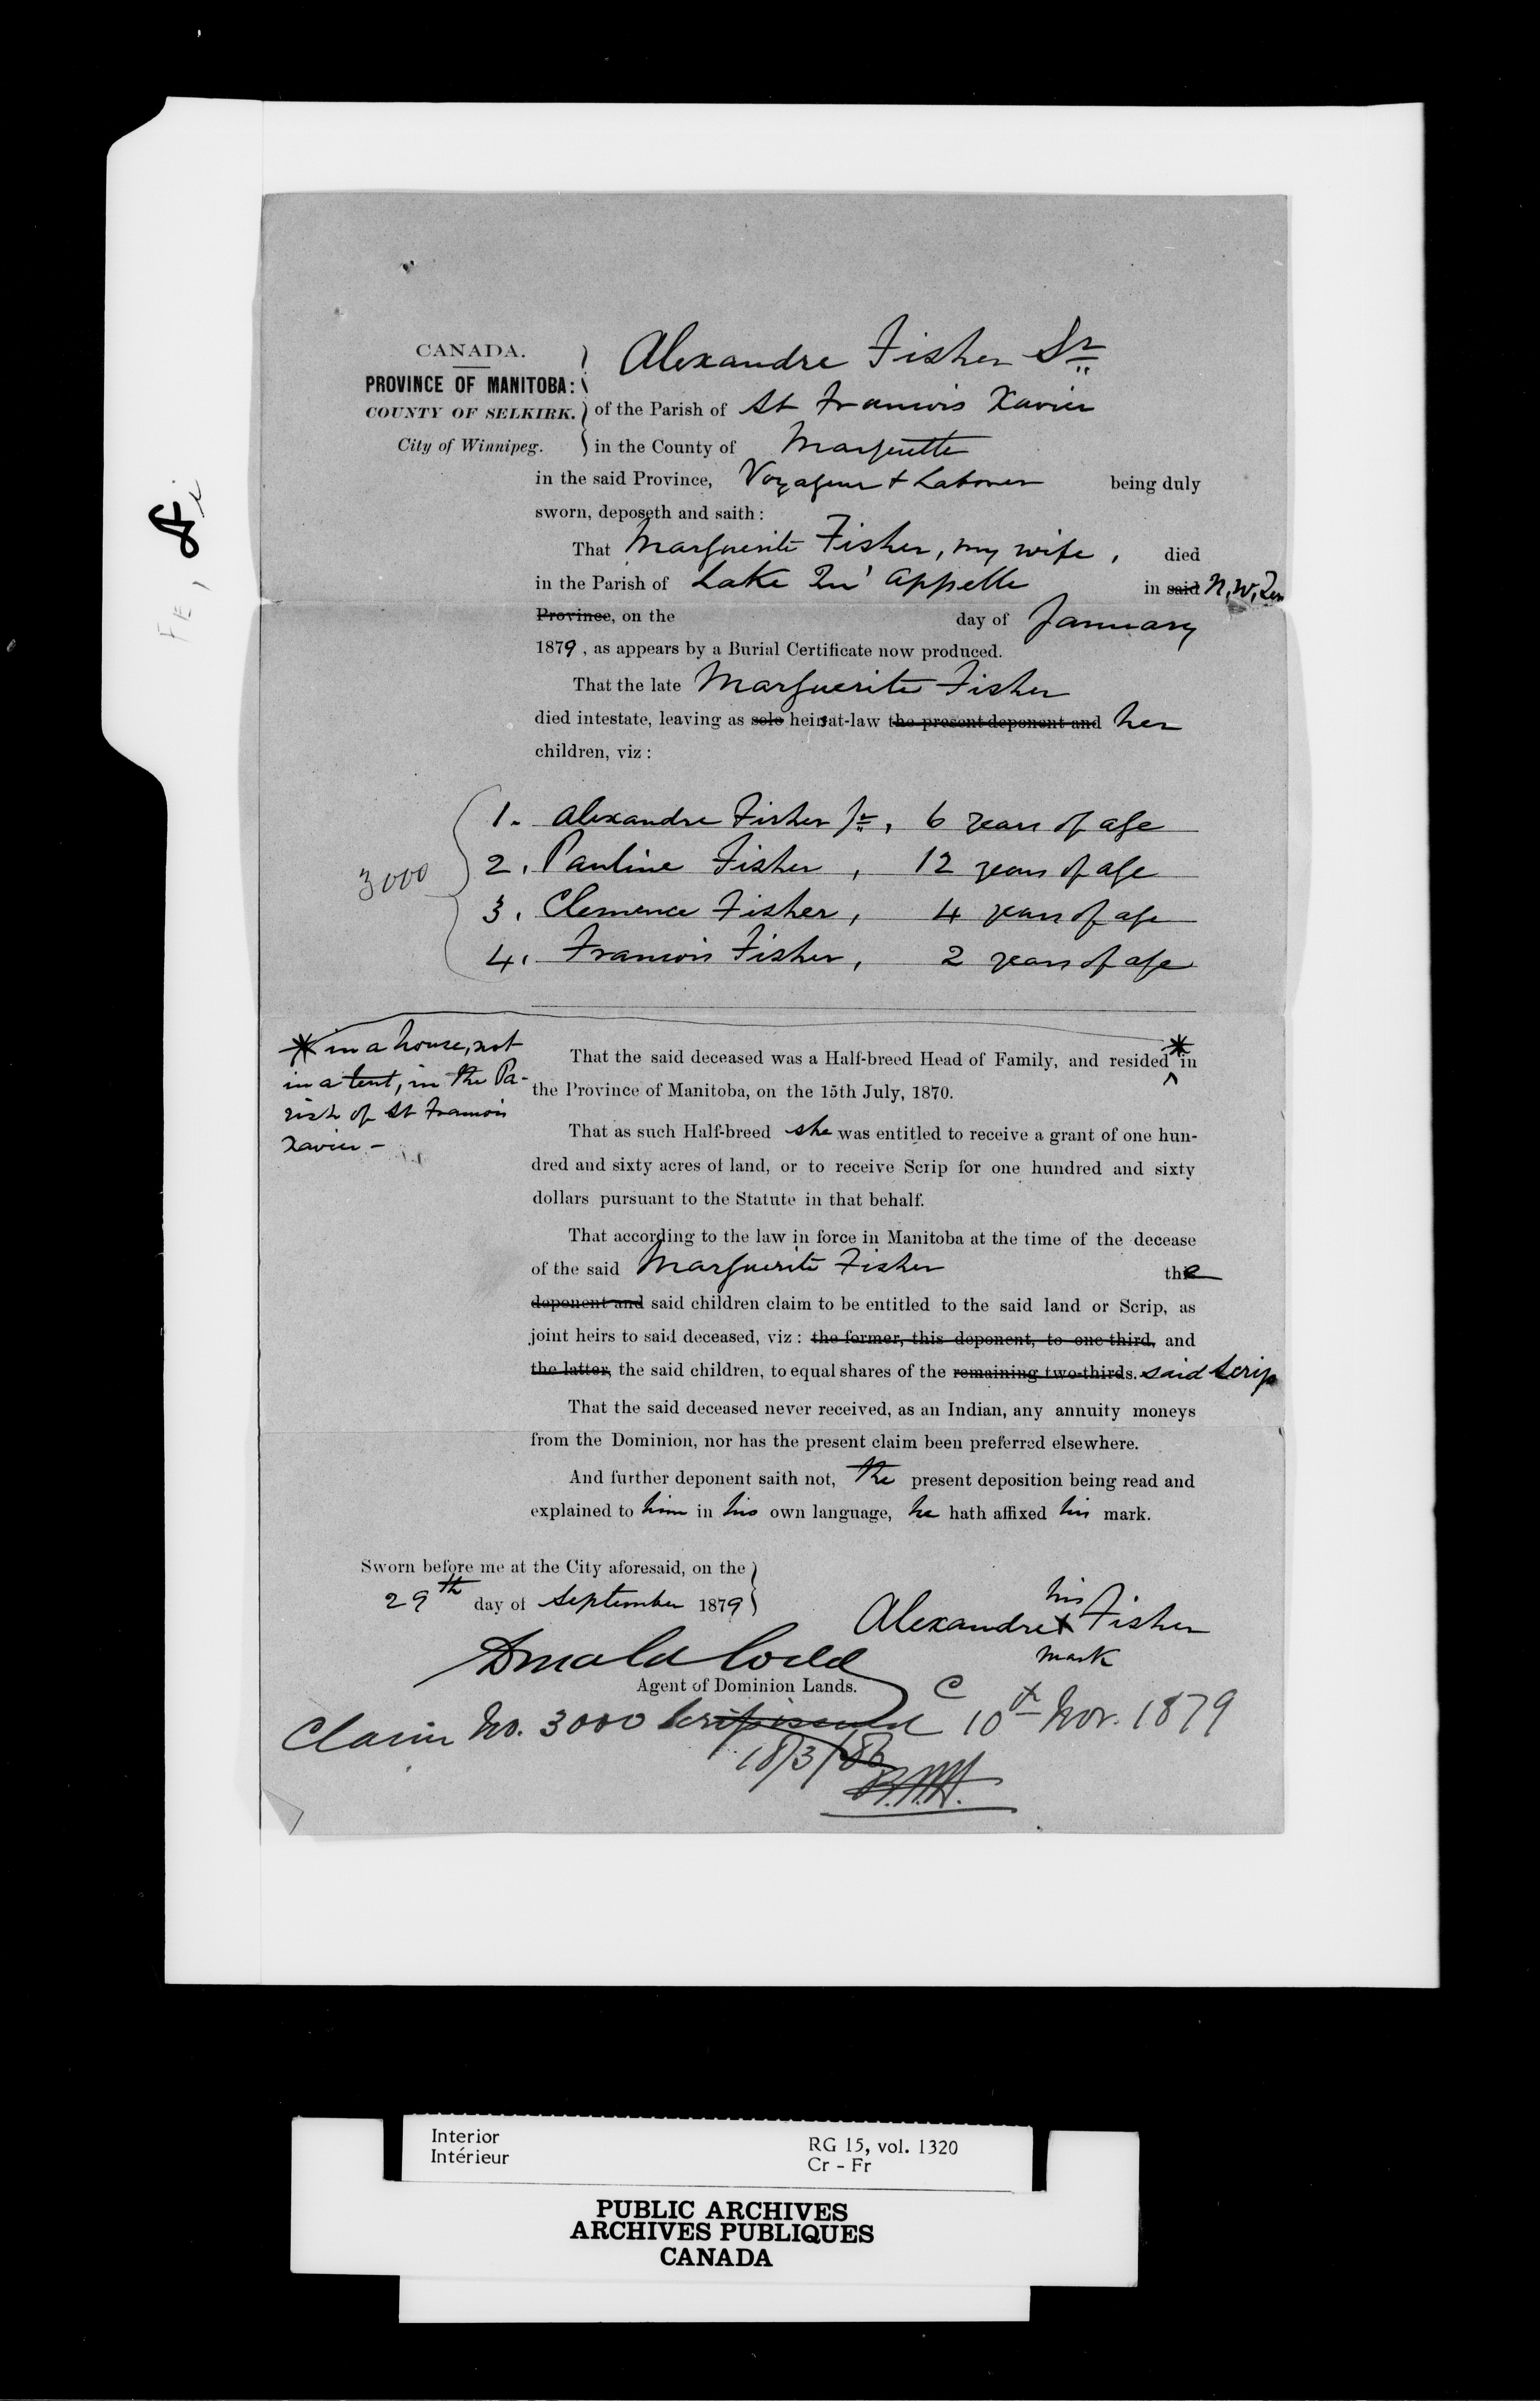 CANADA.
PROVINCE OF MANITOBA:
COUNTY OF SELKIRK.
City of Winnipeg.
Alexandre Fisher Sr
of the Parish of St Francois Xavier
in the County of Marquette
in the said Province, Voyageur & Laborer being duly
sworn, deposeth and saith:
That Marguerite Fisher, my wife, died
in the Parish of Lake Qu'appelle in said N.W. Ter
Province, on the day of January
1879, as appears by a Burial Certificate now produced.
That the late Marguerite Fisher
died intestate, leaving as sole heirs at-law the present deponent and her
children, viz:
1. Alexandre Fisher Jr, 6 years of age
2. Pauline Fisher, 12 years of age
3. Clemence Fisher, 4 years of age
4. Francois Fisher, 2 years of age
3000
* in a house, not
in a tent, in the Pa-
rish of St Francois
Xavier -
That the said deceased was a Half-breed Head of Family, and resided * in
the Province of Manitoba, on the 15th July, 1870.
That as such Half-breed she was entitled to receive a grant of one hun-
dred and sixty acres of land, or to receive Scrip for one hundred and sixty
dollars pursuant to the Statute in that behalf.
That according to the law in force in Manitoba at the time of the decease
of the said Marguerite Fisher the
deponent and said children claim to be entitled to the said land or Scrip, as
joint heirs to said deceased, viz: the former, this deponent, to one third, and
the latter, the said children, to equal shares of the remaining two-thirds. said Scrip
That the said deceased never received, as an Indian, any annuity moneys
from the Dominion, nor has the present claim been preferred elsewhere.
And further deponent saith not, the present deposition being read and
explained to him in his own language, he hath affixed his mark.
Sworn before me at the City aforesaid, on the
29th day of September 1879
his
Alexandre X Fisher
mark
Agent of Dominion Lands.
Claim No. 3000 Scrip issued C 10th Nov. 1879
18/3/86
Interior
Intérieur
RG 15, vol. 1320
Cr - Fr
PUBLIC ARCHIVES
ARCHIVES PUBLIQUES
CANADA